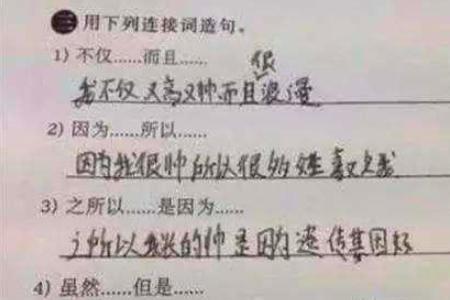 三 用下列连接词造句。
1) 不仅……而且……
很
我不仅又高又帅而且浪漫
2) 因为……所以……
因为我很帅所以很多姓喜欢我
3) 之所以……是因为……
之所以我长的帅是因为遗传基因好
4) 虽然……但是……